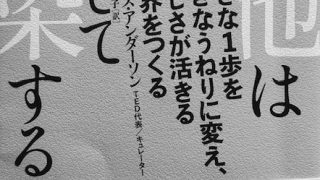 他は
さな1歩を
きなうねりに変え、
しさが活きる
界をつくる
ス・アンダーソン TED代表/キュレーター
子 訳
して
染する